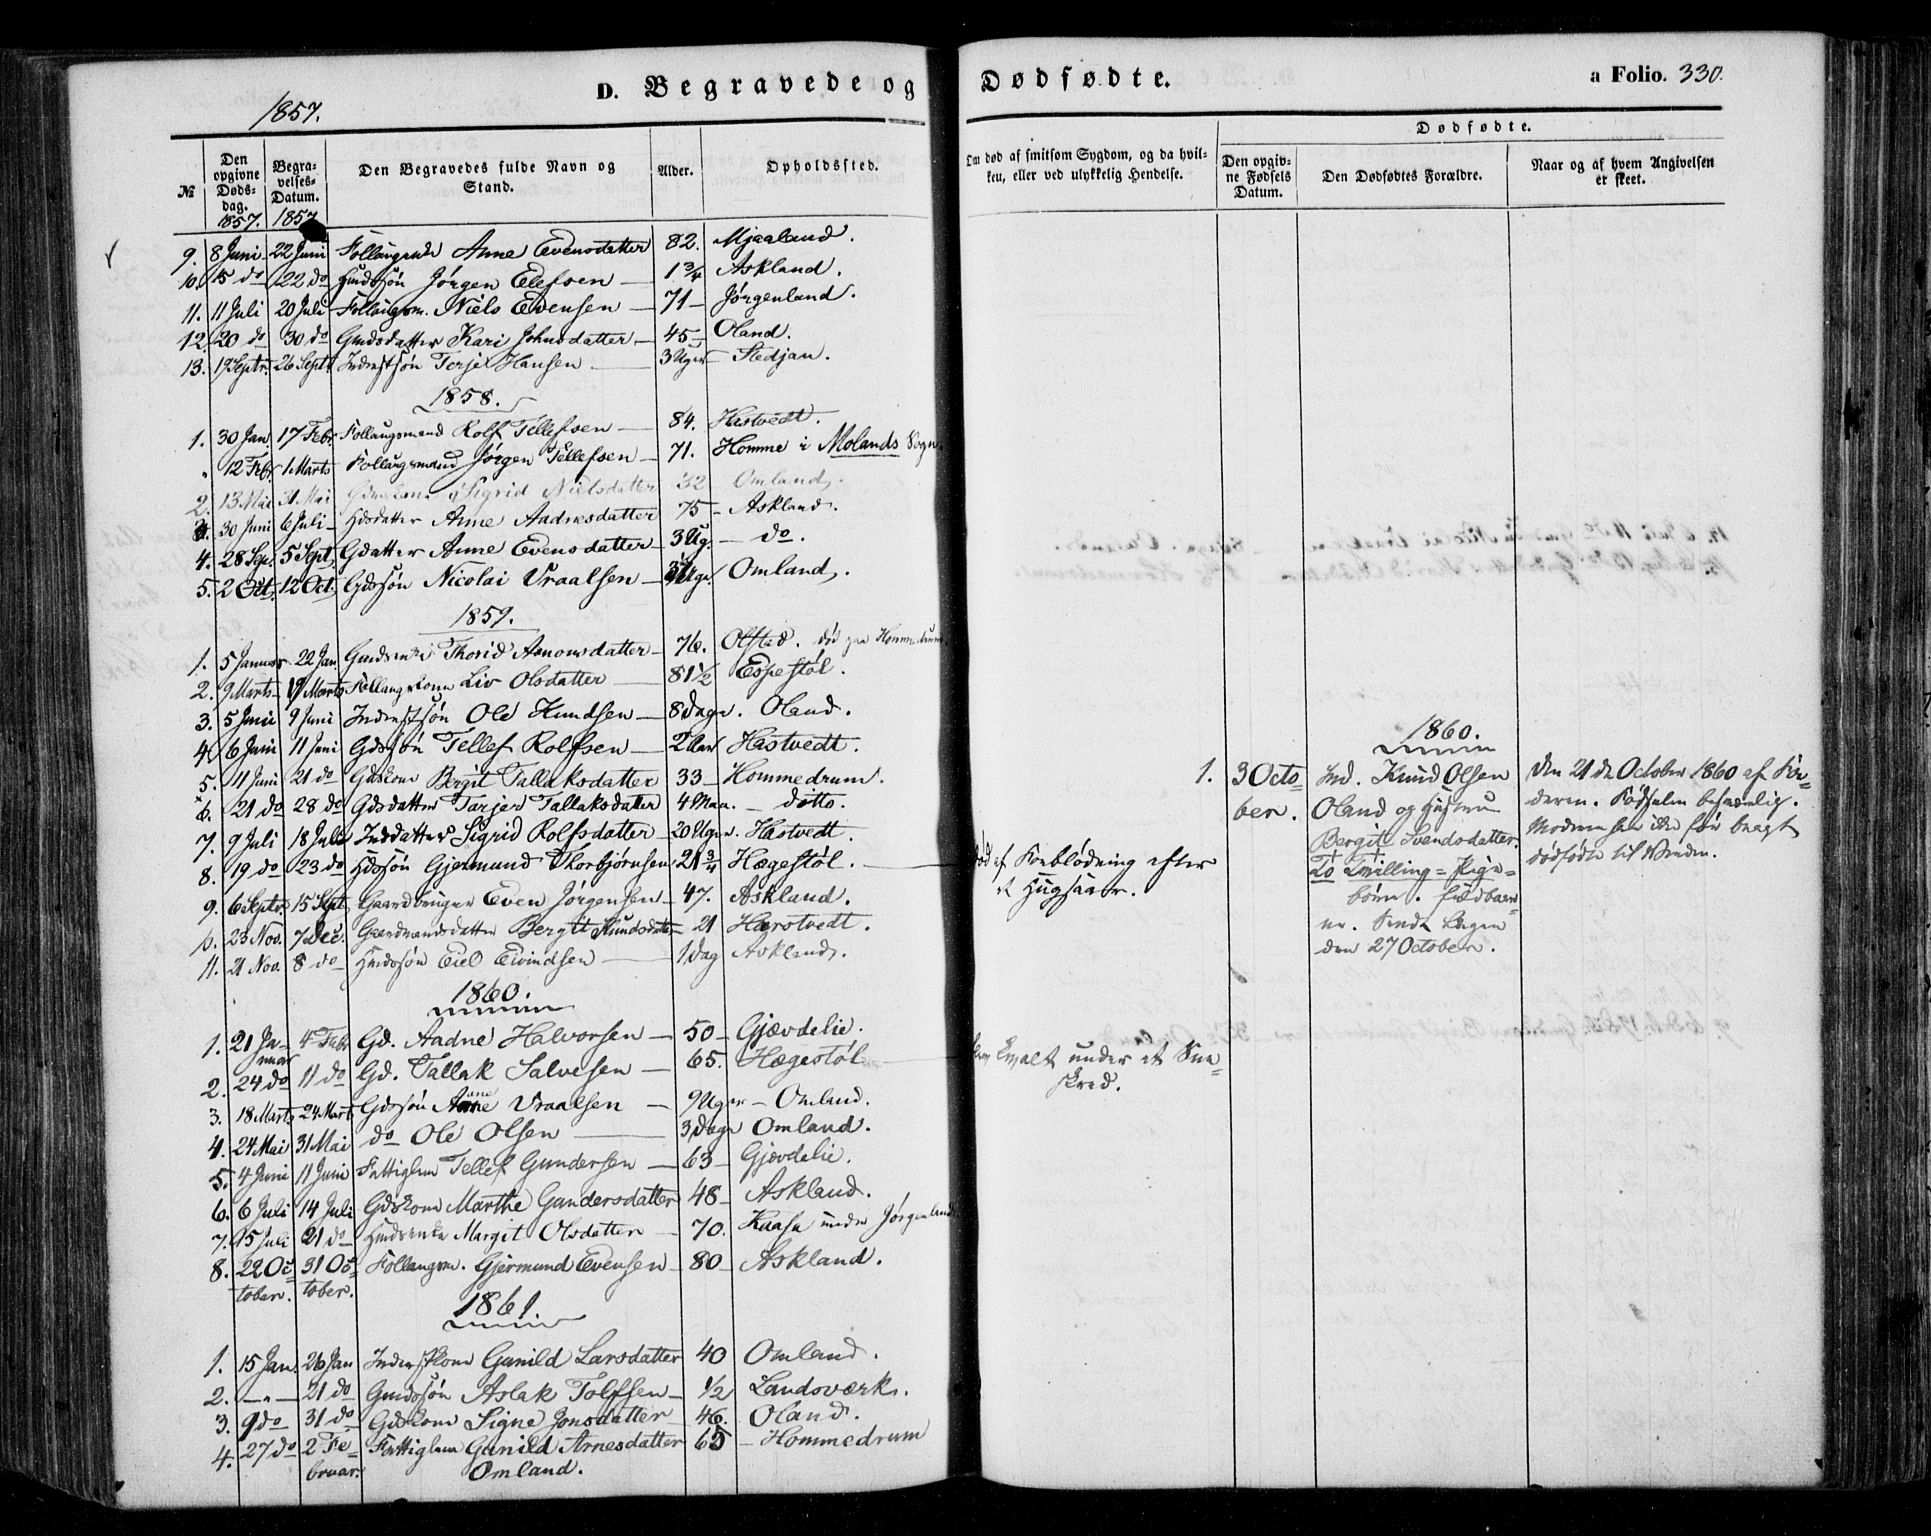 D. Begravede og Dødfødte.
a Folio. 330.
1857.
№
Den opgivne Døds-dag. 1857.
Begra-velses-Datum. 1857
Den Begravedes fulde Navn og Stand.
Alder.
Opholdssted.
Om død af smitsom Sygdom, og da hvil-
ken, eller ved ulykkelig Hendelse.
Dødfødte.
Den opgiv-ne Fødsels Datum.
Den Dødfødtes Forældre.
Naar og af hvem Angivelsen er skeet.
9. 8 Juni 22 Juni Anne Evensdatter 82. Mjaaland.
10. 15 do 22 do Jørgen Elefsen 1 3/4 Askland.
11. 11 Juli 20 Juli Follaugsm. Niels Evensen 71 Jørgenland.
12. 20 do 30 do Gmdsdatter Kari Johnsdatter 45 Oland.
13. 19 Septr. 26 Septr Inderstsøn Terje Hansen 3 Uger Stedjan.
1858.
1. 30 Jan. 17 Febr. Follaugsmand Rolf Tellefsen 84. Hastvedt.
" 12 Febr. 1 Marts Follaugsmand Jørgen Tellefsen 71. Homme i Molands Sogn.
2. 13 Mai 31 Mai Sigrid Nielsdatter 32 Omland.
3. 30 Juni 6 Juli Anne Aadnesdatter 75 Askland.
4. 28 Sep. 5 Sept. Gdatter Anne Evensdatter 3 Ug. do.
5. 2 Oct. 12 Oct. Gdssøn Nicolai Vraalsen Uger Omland.
1859.
1. 5 Januar 22 Jan Thorid Aanonsdatter 76. Ofstad. død paa Hommedrum
2. 9 Marts 19 Marts Follaugskone Liv Olsdatter 81 1/2 Espestøl.
3. 5 Juni 9 Juni Inderstsøn Ole Knudsen 8 Dage. Oland.
4. 6 Juni 11 Juni Gdssøn Tellef Rolfsen 2 Aar Hastvedt.
5. 11 Juni 21 do Gdskone Bergit Tallaksdatter 33 Hommedrum.
6. 21 do 28 do Gdsdatter Tarjer Tallaksdatter 4 Maan. ditto.
7. 9 Juli 18 Juli Inddatter Sigrid Rolfsdatter 20 Uger. Hastvedt.
8. 19 do 23 do Gjermund Thorbjørnsen 21 3/4 Hægestøl.
død af Forblødning efter
et Hugsaar.
9. 6 Septr. 15 Sept. Gaardbruger Even Jørgensen 47. Askland.
10. 23 Nov. 7 Dec. Gaardmandsdatter Bergit Knudsdatter 21 Harstvedt.
11. 21 Nov. 8 do Eiel Eivindsen 1 Dag Askland.
1860.
1. 21 Ja-nuar 4 Febr Gd. Aadne Halvorsen 50 Gjævdelie.
2. 24 do 11 do Gd. Tallak Salvesen 65. Hægestøl
qvalt under et Snee-
skred.
3. 18 Marts 24 Marts Gdssøn Vraalsen 9 Uger Omland.
4. 24 Mai 31 Mai do Ole Olsen 3 Dage Omland.
5. 4 Juni 11 Juni Fattiglem Tellef Gundersen 63 Gjævdelie.
6. 6 Juli 14 Juli Gdskone Marthe Gundersdatter 48 Askland.
7. 15 Juli 21 do Margit Olsdatter 70. Kaasa under Jørgenland
8. 22 Oc-tober. 31 Oc-tober. Follaugsm. Gjermund Evensen 80 Askland.
1861.
1. 15 Jan. 26 Jan Inderstkone Gunild Larsdatter 40 Omland.
2. — " — 21 do Aslak Tolfsen 1/2 Landsværk.
3. 9 do 31 do Gdskone Signe Jonsdatter 46. Oland.
4. 27 do 2 Fe-bruar. Fattiglem Gunild Arnesdatter 65 Hommedrum
Omland.
1860.
1. 3 Octo-ber.
Ind. Knud Olsen
Oland og Hustru
Bergit Svendsdatter.
To Tvilling-Pige-
børn. fuldbaar-
ne.
den 27 October.
Den 21 de October 1860 af Fa-
deren. Fødselen besværlig.
Moderen har ikke før bragt
dødfødte til Verden.